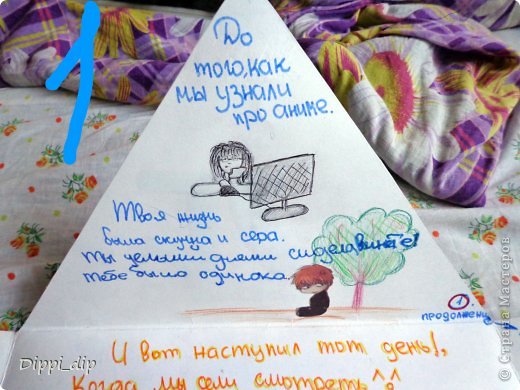 1
До
того, как
мы узнали
про аниме.
Твоя жизнь
была скучна и сера.
Ты целыми днями сидела в инете!
Тебе было одинока.
1.
продолжение
И вот наступил тот день!,
Когда мы сели смотреть ^^
Dippi_dip
© Страна Мастеров